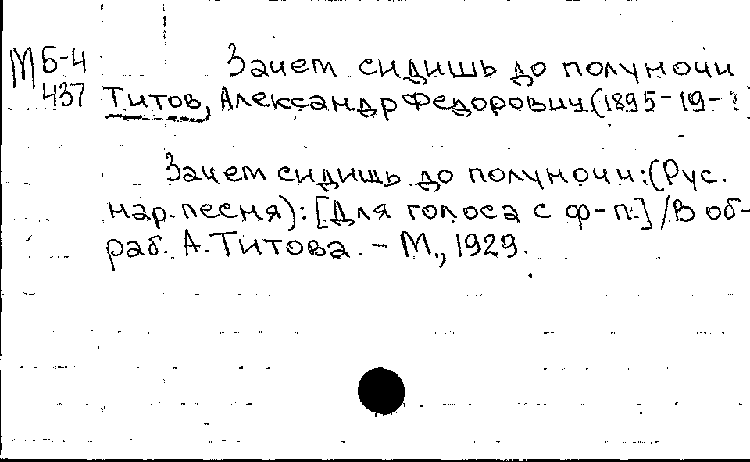 М Б-4 Зачем сидишь до полуночи
437 Титов, Александр Федорович (1895-19-?
Зачем сидишь до полуночи: (Рус.
нар. песня): [Для голоса с ф-п.] / В об-
раб. А. Титова. - М., 1929.